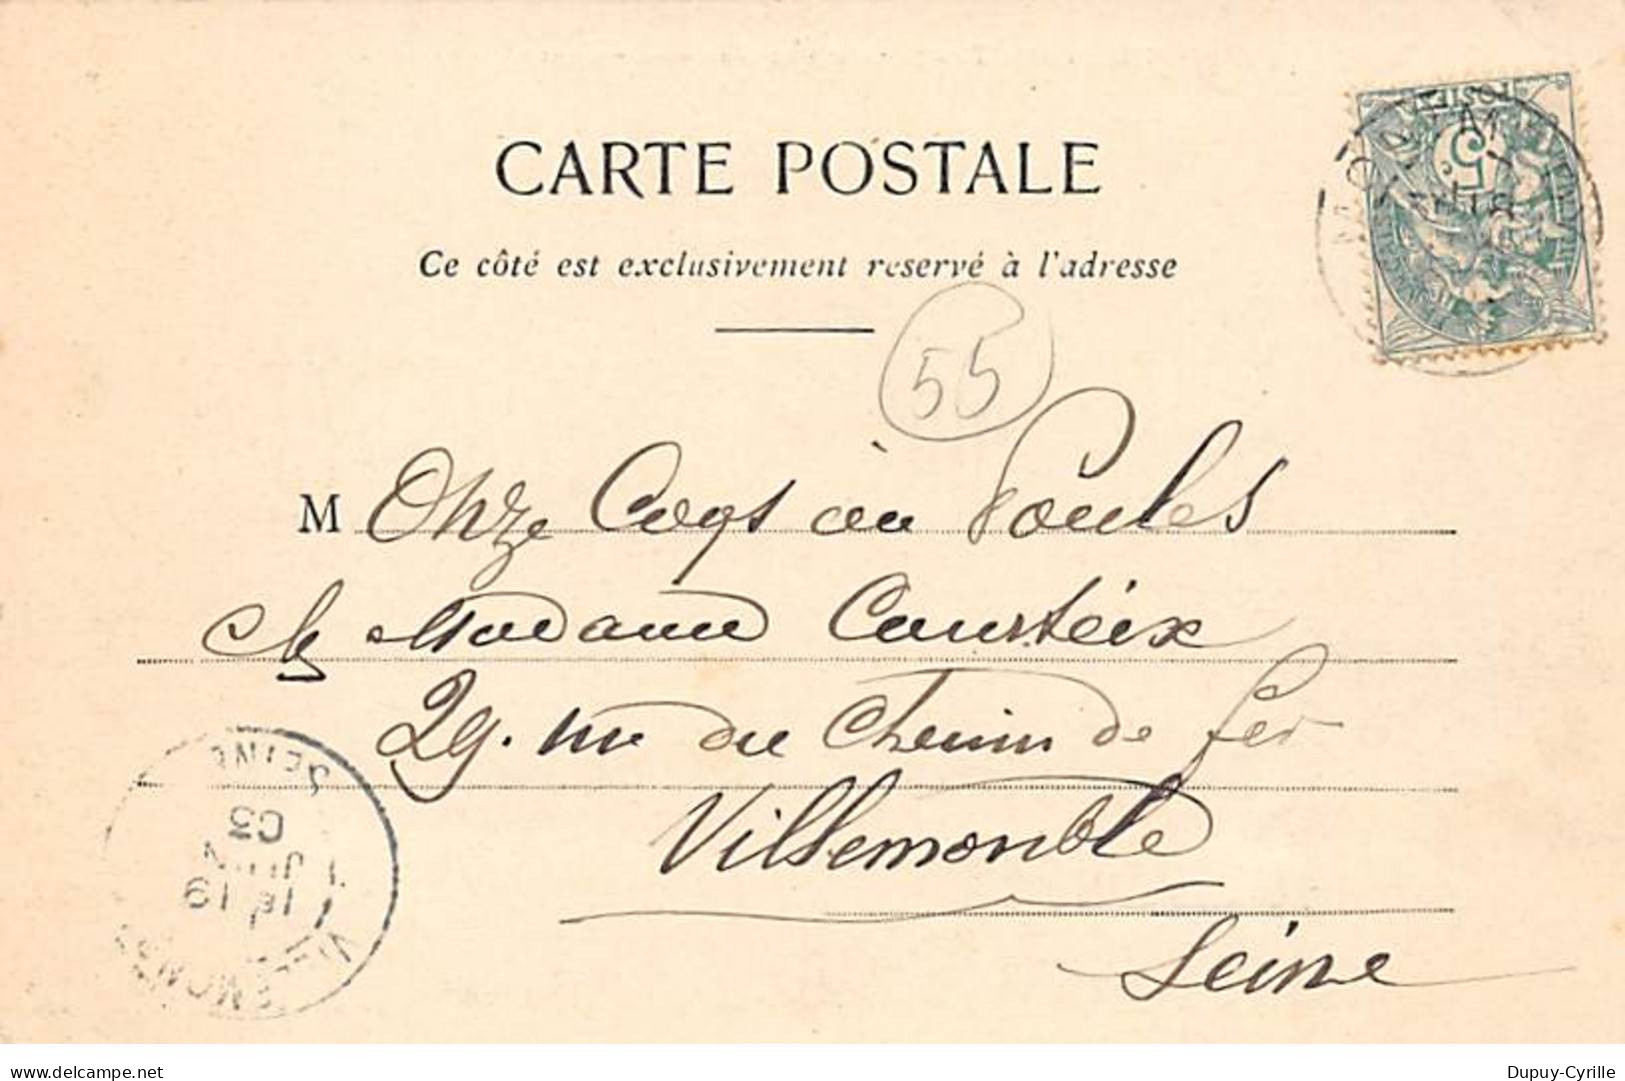 CARTE POSTALE
Ce côté est exclusivement reservé à l'adresse
POSTES
5
55
M Onze Coqs ou Poules
chez Madame Courteix
29. rue du Chemin de fer
Villemomble
Seine
SEINE
03
JUIN
1 19
delcampe.net
Dupuy-Cyrille